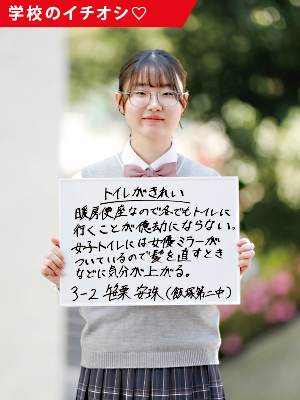 学校のイチオシ♡
トイレがきれい
暖房便座なので冬でもトイレに
行くことが億劫にならない。
女子トイレには女優ミラーが
ついているので髪を直すとき
などに気分が上がる。
3-2 安珠(飯塚第二中)